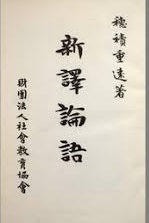 穂積重遠著
新譯論語
財團法人社會教育協會